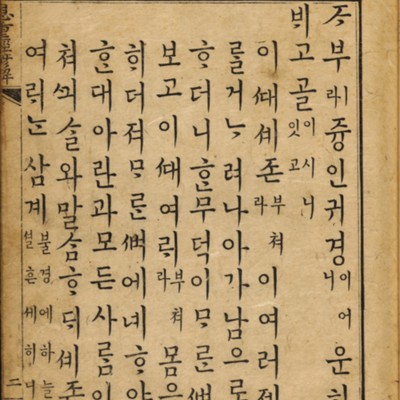 ᄌᆞ부ㅣ라즁인귀경이어니운
ᄇᆡ고골이시니잇고
이ᄯᅢ셰존부쳐라이여러졔
를거ᄂᆞ려나아가남으로
ᄒᆞ더니ᄒᆞᆫ무덕이ᄆᆞ른ᄲᅧ
보고이ᄯᅢ여ᄅᆡ부쳐라몸을
히더져ᄆᆞ른ᄲᅧ에녜ᄒᆞ야
ᄒᆞᆫ대아란과모든사ᄅᆞᆷ이
쳐ᄭᅴ솔와말ᄉᆞᆷᄒᆞᄃᆡ셰존
여ᄅᆡᄂᆞᆫ삼계불경에하늘셜흔세히니
恩重經諺解
二